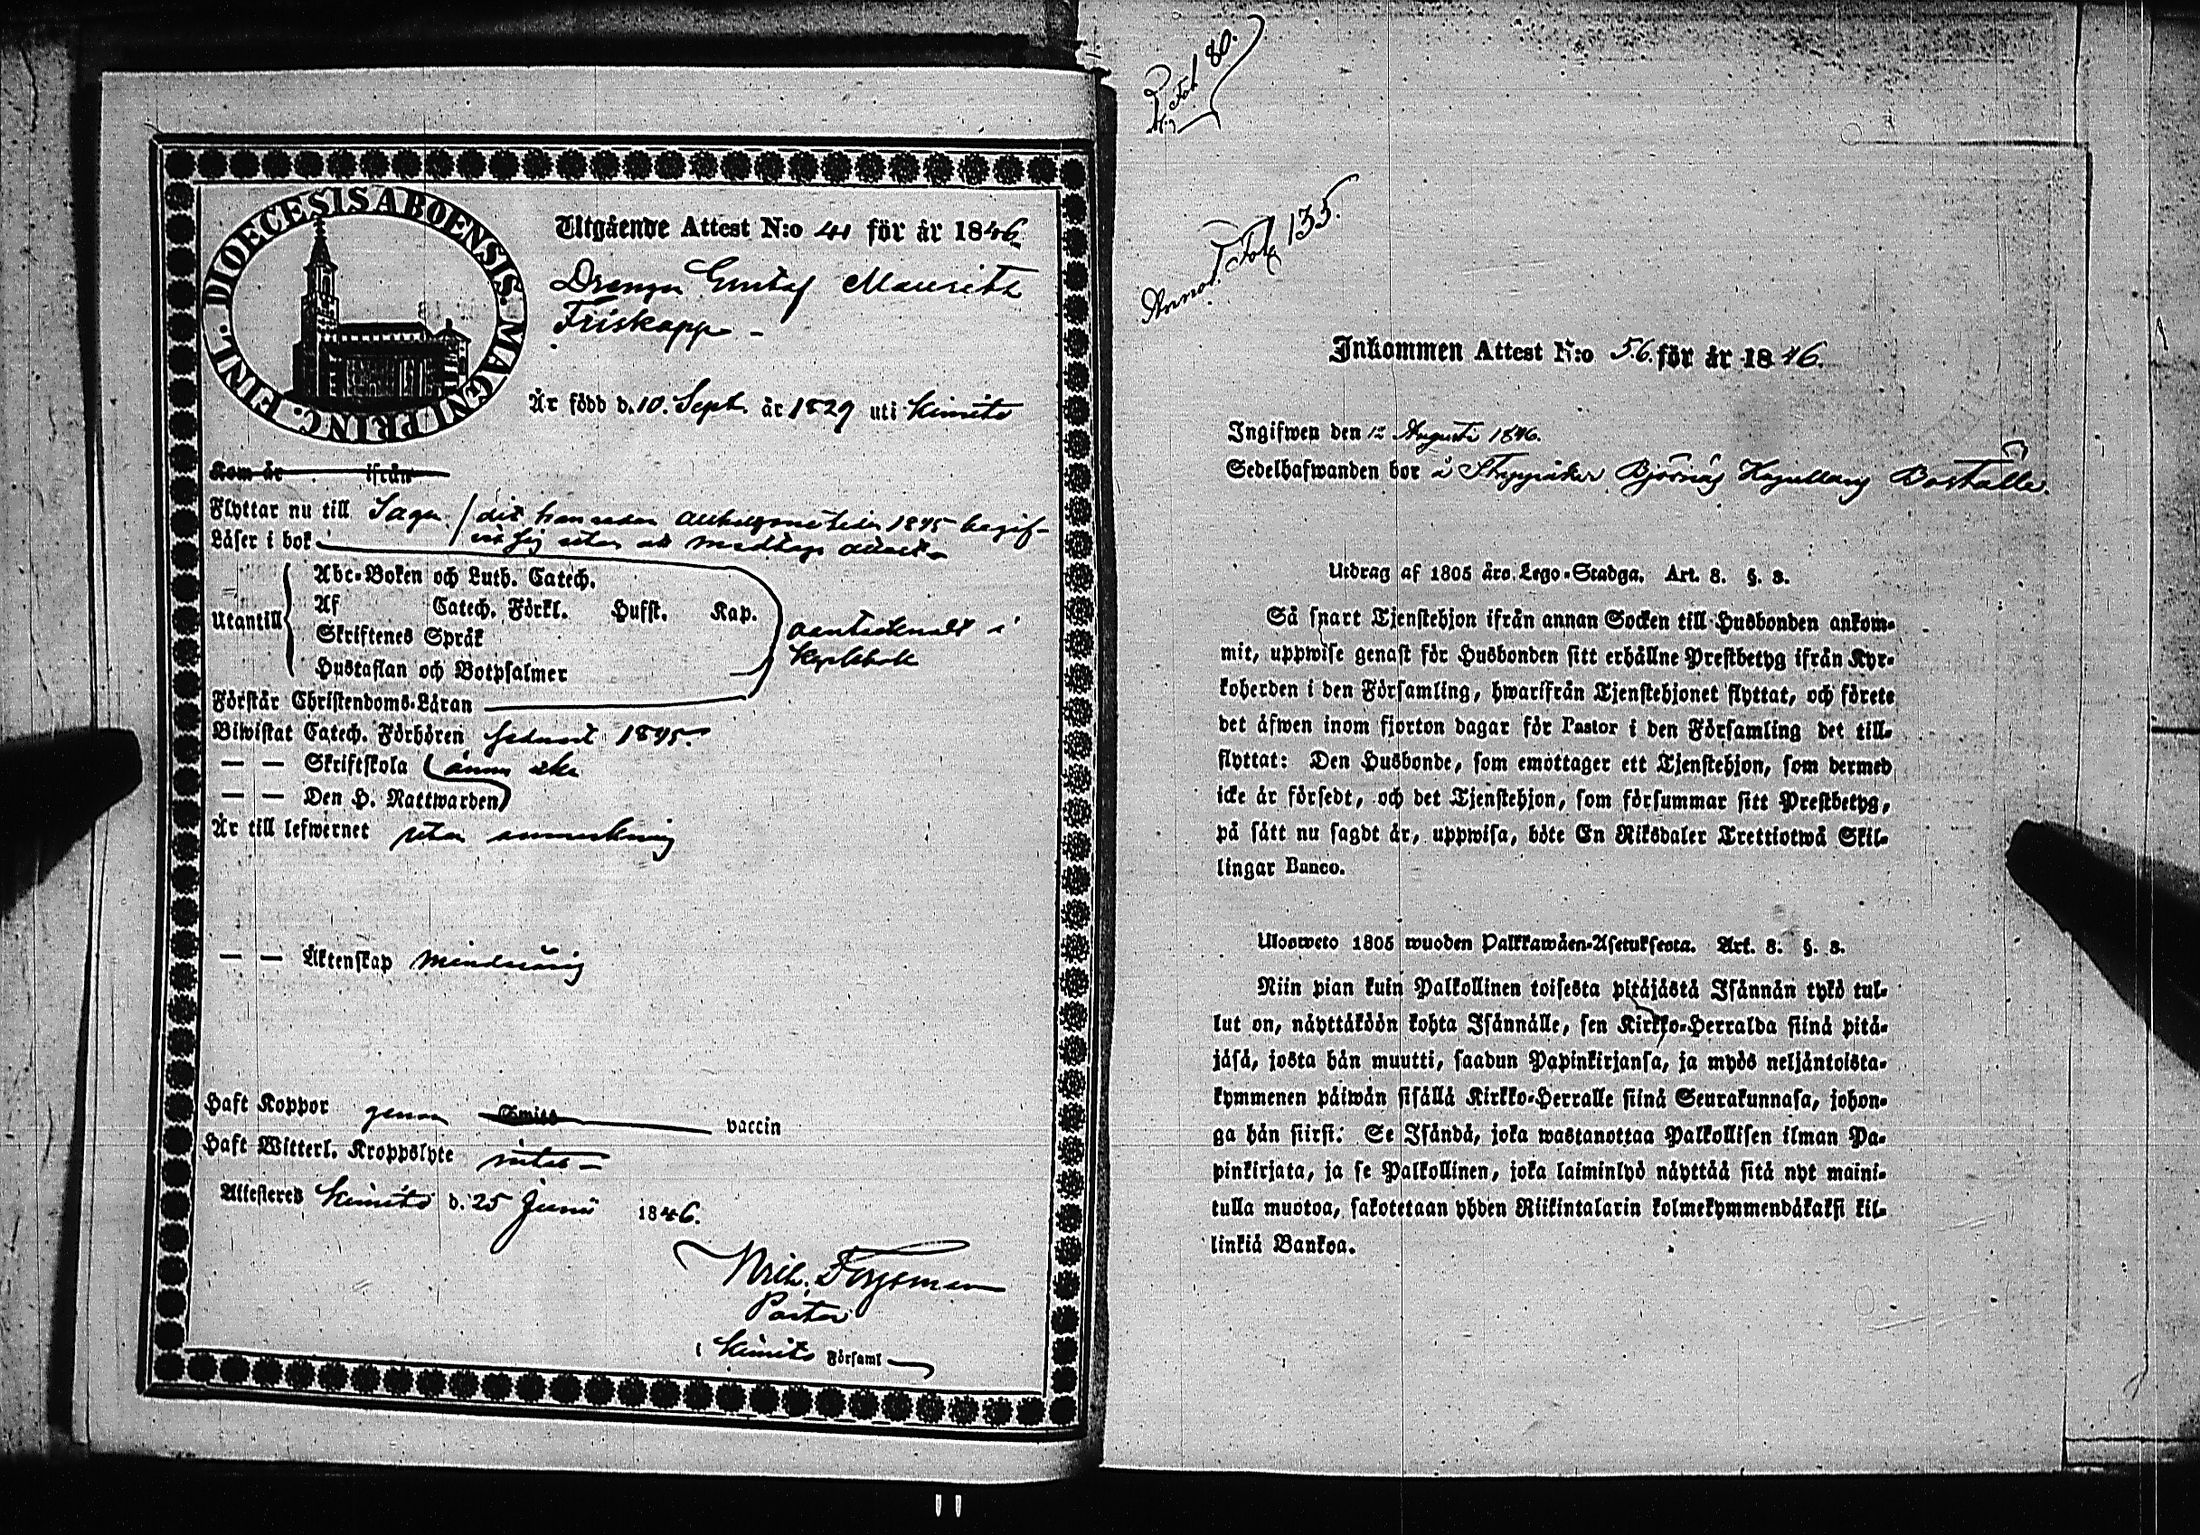 DIOECESIS ABOENSIS. MAGNI PRINC. FINL.
Utgående Attest N:o 41 för år 1846.
Drengen Gustaf Mauritz
Friskopp
Är född d. 10. Sept. år 1829 uti Kimito
Kom år ifrån
Flyttar nu till Sagu / dit han redan 1845 begif-
Läser i bok
vit sig utan att medtaga attest
Abc-Boken och Luth. Catech.
Utantill
Af Catech. Förkl. Husst. Kap.
Skriftenes Språk
Hustaflan och Botpsalmer
antecknadt i
Förstår Christendoms-Läran
Biwistat Catech. Förhören 1845.
— — Skriftskola ännu icke
— — Den H. Nattwarden
Är till lefwernet utan anmerkning
— — Äktenskap minderårig
Haft Koppor genom Smitt vaccin
Haft Witterl. Kroppslyte intet
Attesteras Kimito d. 25 Junii 1846.
Pastor
i Kimito Församl
Fol 80.
Annot. Fol. 135.
Inkommen Attest N:o 56. för år 1846.
Ingifwen den 12 Augusti 1846.
Sedelhafwanden bor å Björnäs Boställe.
Utdrag af 1805 års. Lego-Stadga. Art. 8. §. 8.
Så snart Tjenstehjon ifrån annan Socken till Husbonden ankom-
mit, uppwise genast för Husbonden sitt erhållne Prestbetyg ifrån Kyr-
koherden i den Församling, hwarifrån Tjenstehjonet flyttat, och förete
det äfwen inom fjorton dagar för Pastor i den Församling det till-
flyttat: Den Husbonde, som emottager ett Tjenstehjon, som dermed
icke är försedt, och det Tjenstehjon, som försummar sitt Prestbetyg,
på sätt nu sagdt är, uppwisa, böte En Riksdaler Trettiotwå Skil-
lingar Banco.
Ulosweto 1805 wuoden Palkkawäen-Asetuksesta. Art. 8. §. 8.
Niin pian kuin Palkollinen toisesta pitäjästä Isännän tykö tul-
lut on, näyttäköön kohta Isännälle, sen Kirkko-Herralda siinä pitä-
jäsä, josta hän muutti, saadun Papinkirjansa, ja myös neljäntoista-
kymmenen päiwän sisällä Kirkko-Herralle siinä Seurakunnasa, johon-
ga hän siirsi. Se Isändä, joka wastanottaa Palkollisen ilman Pa-
pinkirjata, ja se Palkollinen, joka laiminlyö näyttää sitä nyt maini-
tulla muotoa, sakotetaan yhden Riikintalarin kolmekymmendäkaksi kil-
linkiä Bankoa.